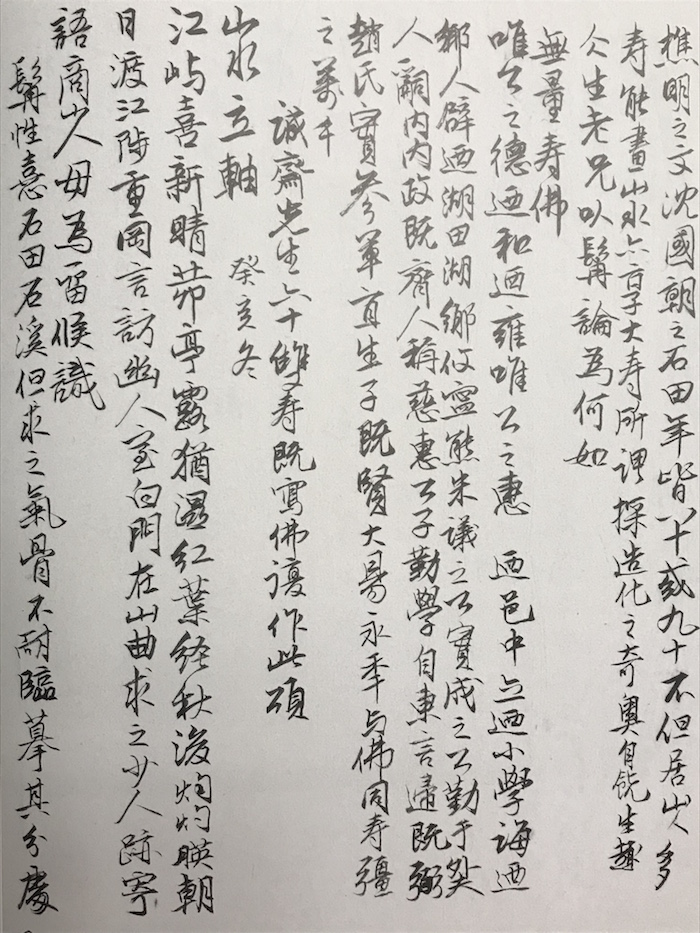 樵明之文沈國朝之石田年皆八十或九十不但居山人多
寿能畫山水亦享大寿所謂探造化之奇奧自饒生趣
仌生老兄以髯論為何如
無量寿佛
唯公之德迺和迺雍唯公之惠 迺邑中立迺小學誨迺
鄉人辟迺湖田湖鄉攸寧熊朱議之公實成之公勤于
人嗣内内政既齊人稱慈惠公子勤學自東言歸既
趙氏實參軍直生子既賢大昜永年与佛同寿彊
之萬年
誠齋先生六十雙寿既寫佛複作此頌
山水立軸 癸亥冬
江嶼喜新晴茆亭露猶濕红葉經秋後灼灼暎朝
日渡江陟重岡言訪幽人室白門在山曲求之少人跡寄
語商山人毋為留候識
髯性憙石田石溪但求之氣骨不耐臨摹其分處